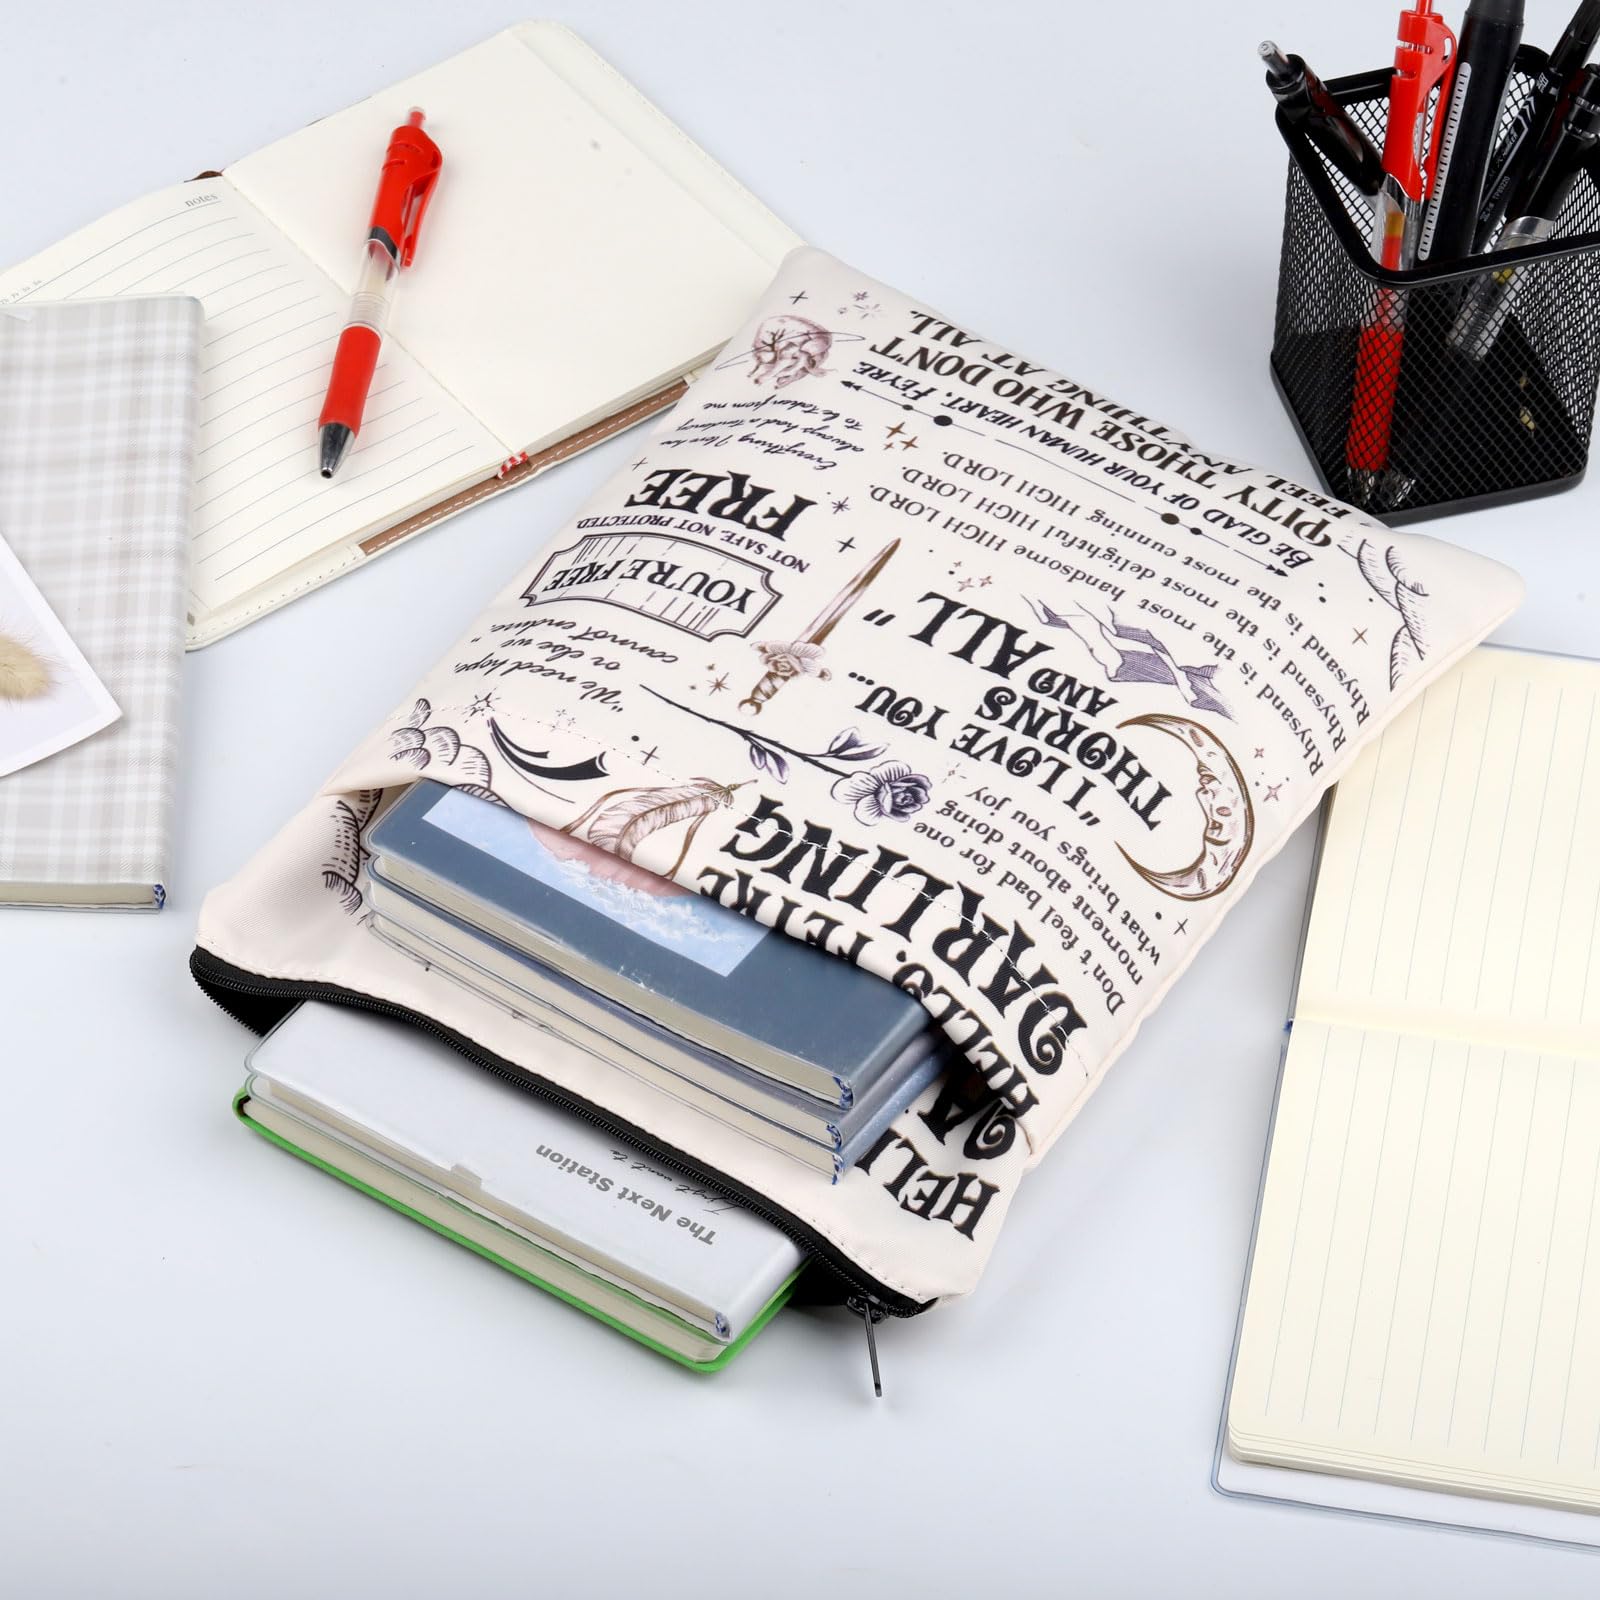 notes
PITY THOSE WHO DON'T
FEEL ANYTHING AT ALL.
BE GLAD OF YOUR HUMAN HEART, FEYRE.
Rhysand is the most handsome HIGH LORD.
Rhysand is the most delightful HIGH LORD.
Rhysand is the most cunning HIGH LORD.
Everything I love has
always had a tendency
to be taken from me
FREE
NOT SAFE. NOT PROTECTED.
YOU'RE FREE
"We need hope,
or else we
cannot endure."
"I LOVE YOU...
THORNS
AND ALL"
Don't feel bad for one
moment about doing
what brings you joy
HELLO, FEYRE
DARLING
HELL
The Next Station